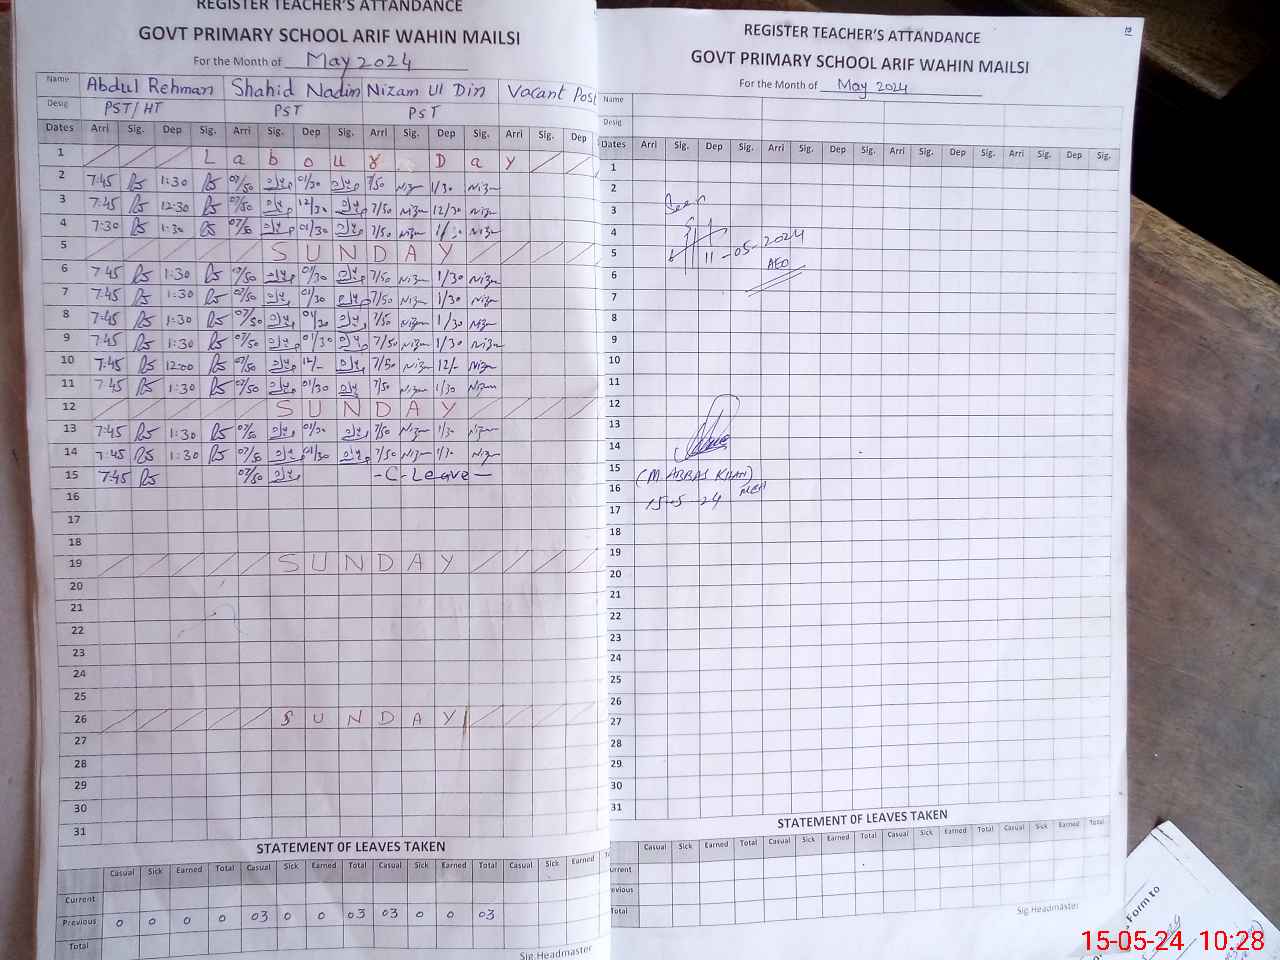 REGISTER TEACHER'S ATTANDANCE
GOVT PRIMARY SCHOOL ARIF WAHIN MAILSI
For the Month of May 2024
Name Abdul Rehman Shahid Nadim Nizam Ul Din Vacant Post
Desig PST/HT PST PST
Dates Arri Sig. Dep Sig. Arri Sig. Dep Sig. Arri Sig. Dep Sig. Arri Sig. Dep
1 Labour Day
2 7:45 1:30 07/50 01/30 7/50 Nizam 1/30 Nizam
3 7:45 12:30 07/50 12/30 7/50 Nizam 12/30 Nizam
4 7:30 1:30 07/50 01/30 7/50 Nizam 1/30 Nizam
5 SUNDAY
6 7:45 1:30 07/50 01/30 7/50 Nizam 1/30 Nizam
7 7:45 1:30 07/50 01/30 7/50 Nizam 1/30 Nizam
8 7:45 1:30 07/50 01/30 7/50 Nizam 1/30 Nizam
9 7:45 1:30 07/50 01/30 7/50 Nizam 1/30 Nizam
10 7:45 12:00 07/50 12/- 7/50 Nizam 12/- Nizam
11 7:45 1:30 07/50 01/30 7/50 Nizam 1/30 Nizam
12 SUNDAY
13 7:45 1:30 07/50 01/30 7/50 Nizam 1/30 Nizam
14 7:45 1:30 07/50 01/30 7/50 Nizam 1/30 Nizam
15 7:45 07/50 -C-Leave-
16
17
18
19 SUNDAY
20
21
22
23
24
25
26 SUNDAY
27
28
29
30
31
STATEMENT OF LEAVES TAKEN
Casual Sick Earned Total Casual Sick Earned Total Casual Sick Earned Total Casual Sick Earned
Current
Previous 0 0 0 0 03 0 0 03 03 0 0 03
Total
Sig.Headmaster
REGISTER TEACHER'S ATTANDANCE
GOVT PRIMARY SCHOOL ARIF WAHIN MAILSI
For the Month of May 2024
Name
Desig
Dates Arri Sig. Dep Sig. Arri Sig. Dep Sig. Arri Sig. Dep Sig. Arri Sig. Dep Sig.
1
2
3 Seen
4
5 11-05-2024
AEO
6
7
8
9
10
11
12
13
14
15 (M ABBAS KHAN)
16 MEA
17 15-5-24
18
19
20
21
22
23
24
25
26
27
28
29
30
31
STATEMENT OF LEAVES TAKEN
Casual Sick Earned Total Casual Sick Earned Total Casual Sick Earned Total Casual Sick Earned Total
urrent
evious
Total
Sig.Headmaster
Form to
15-05-24 10:28